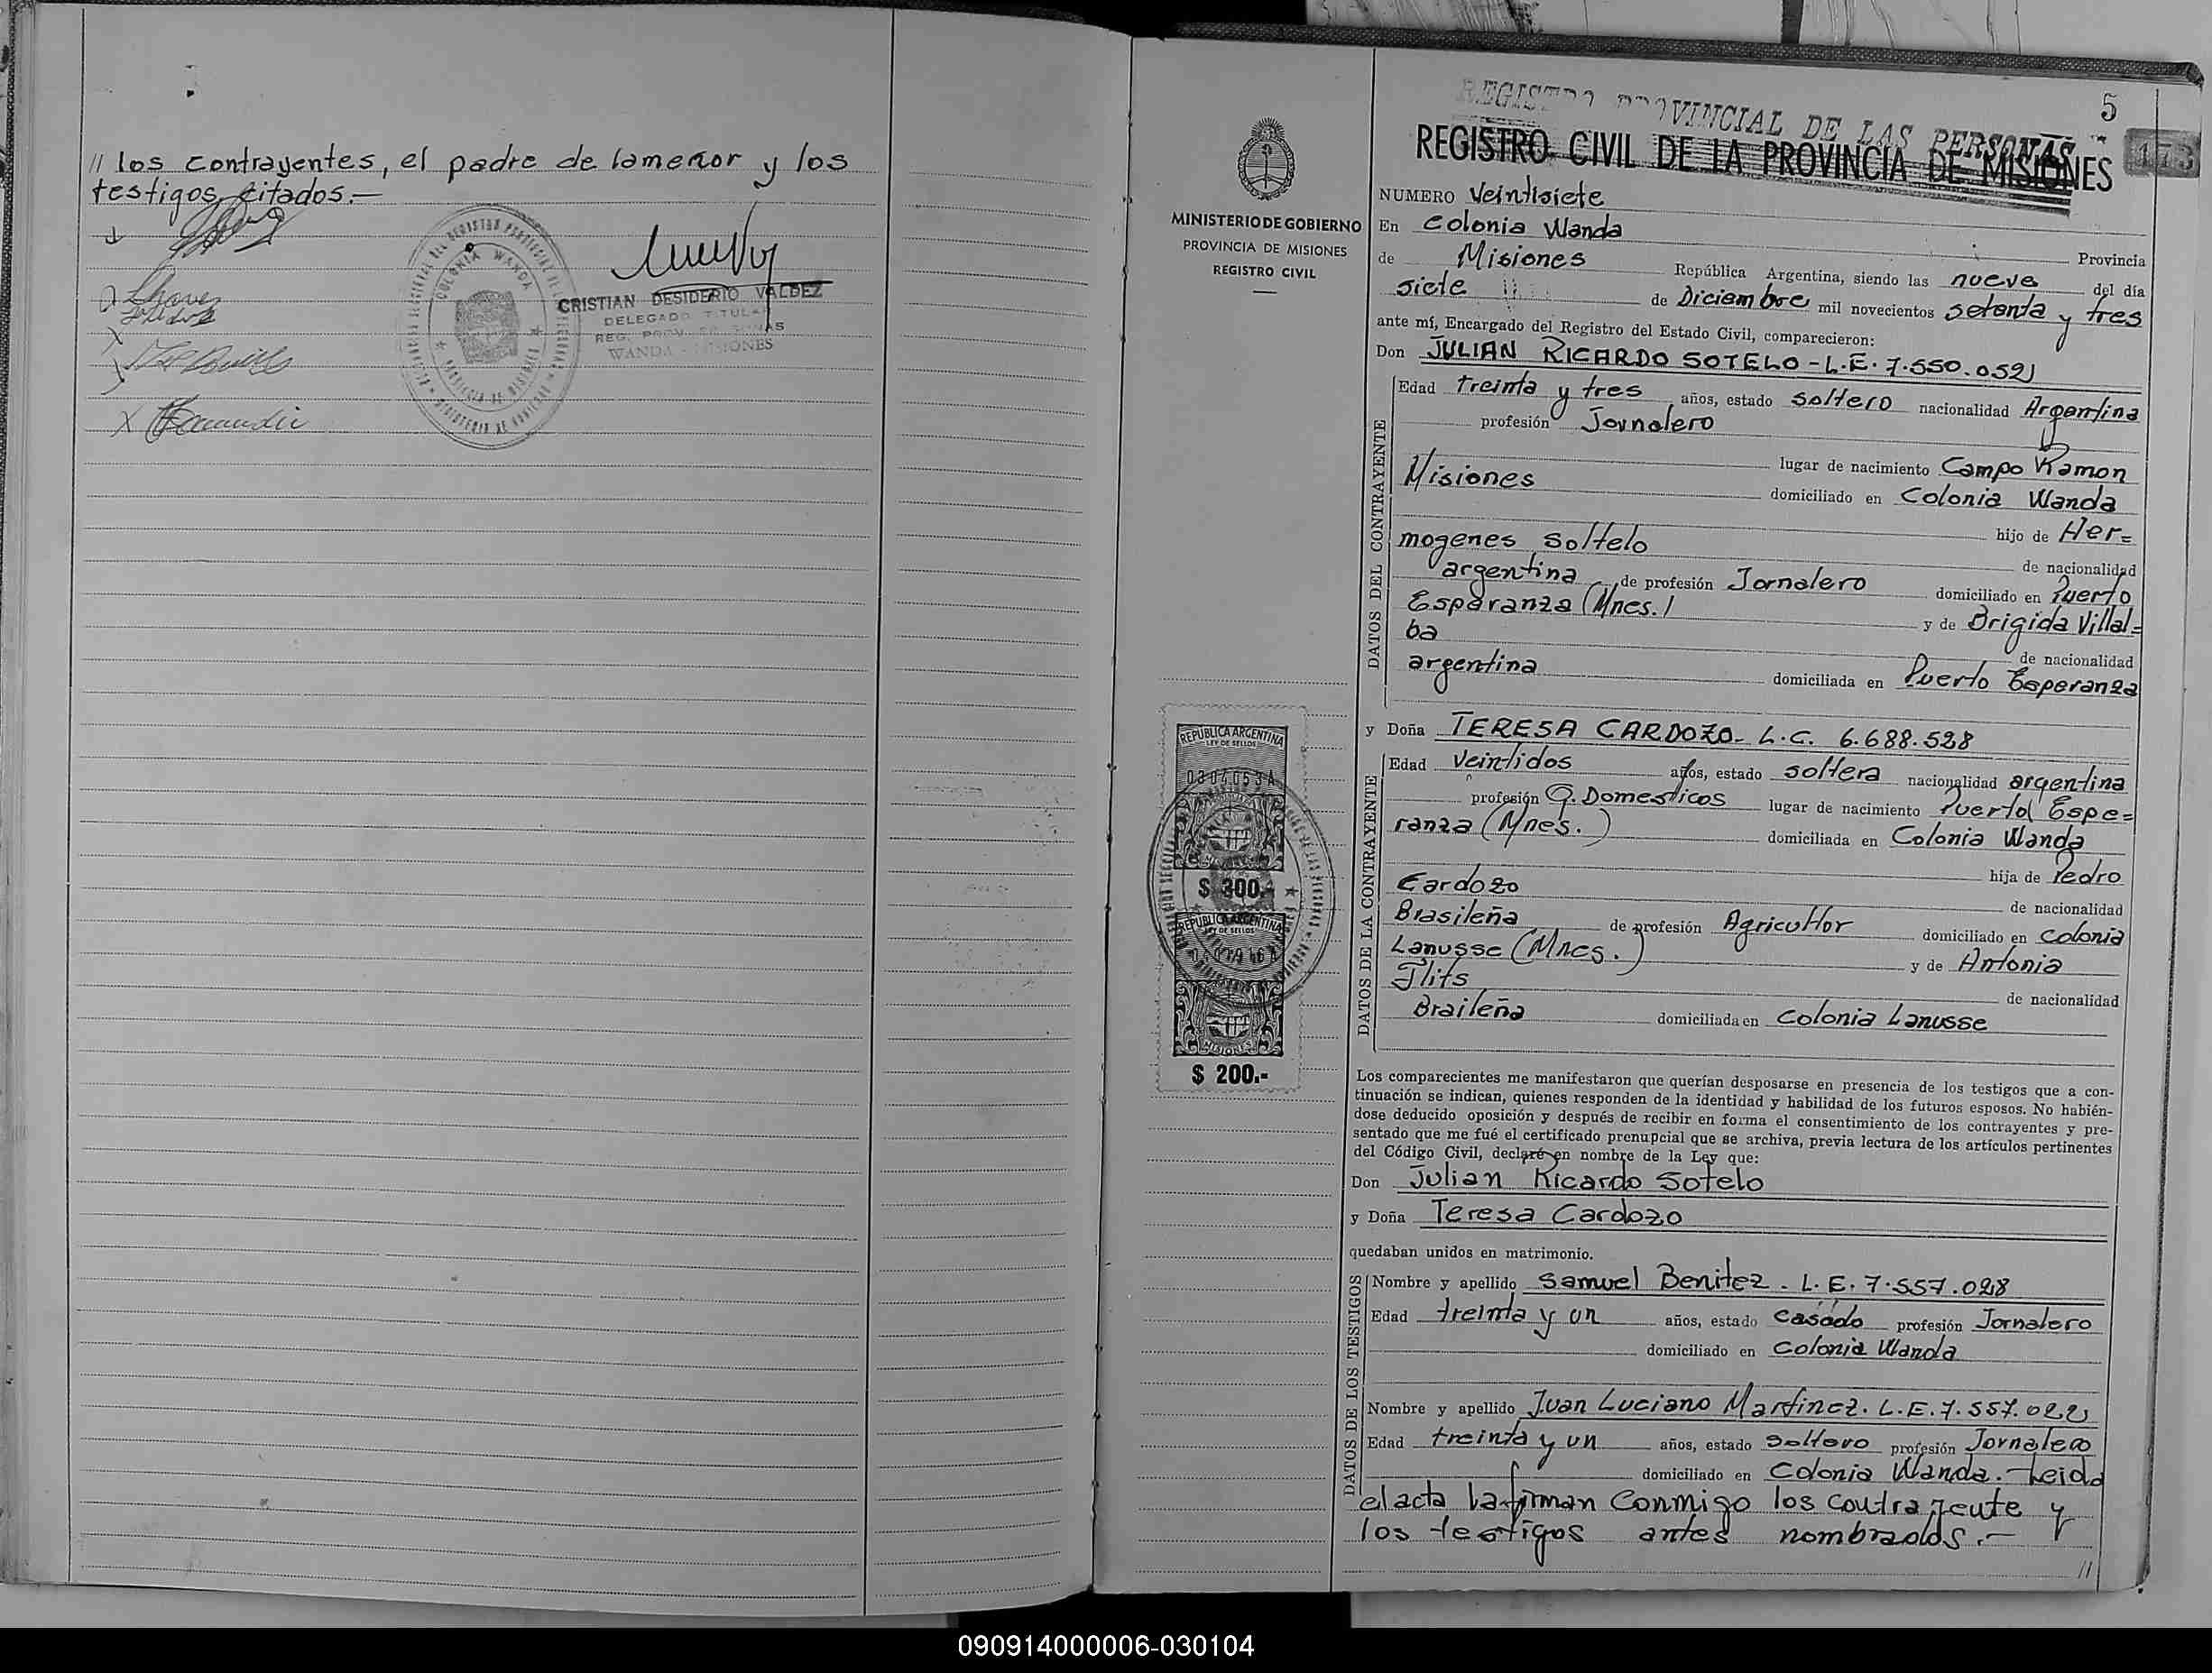 // los contrayentes, el padre de lamenor y los
testigos citados.-
COLONIA WANDA
CRISTIAN DESIDERIO VALDEZ
DELEGADO TITULAR
WANDA - MISIONES
MINISTERIO DE GOBIERNO
PROVINCIA DE MISIONES
REGISTRO CIVIL
REPUBLICA ARGENTINA
LEY DE SELLOS
$ 300.-
REPUBLICA ARGENTINA
LEY DE SELLOS
MISIONES
$ 200.-
5
REGISTRO PROVINCIAL DE LAS PERSONAS
REGISTRO CIVIL DE LA PROVINCIA DE MISIONES
173
NUMERO Veintisiete
En Colonia Wanda
Provincia
de Misiones República Argentina, siendo las nueve del día
siete de Diciembre mil novecientos setenta y tres
ante mí, Encargado del Registro del Estado Civil, comparecieron:
Don JULIAN RICARDO SOTELO - L.E. 7.550.052
DATOS DEL CONTRAYENTE
Edad treinta y tres años, estado soltero nacionalidad Argentina
profesión Jornalero
lugar de nacimiento Campo Ramon
Misiones domiciliado en Colonia Wanda
hijo de Her=
mogenes soltelo
de nacionalidad
argentina de profesión Jornalero domiciliado en Puerto
Esperanza (Mnes.) y de Brigida Villal=
ba
de nacionalidad
argentina domiciliada en Puerto Esperanza
y Doña TERESA CARDOZO - L.C. 6.688.528
DATOS DE LA CONTRAYENTE
Edad Veintidos años, estado soltera nacionalidad argentina
profesión Q. Domesticos lugar de nacimiento Puerto Espe=
ranza (Mnes.) domiciliada en Colonia Wanda
hija de Pedro
Cardozo
de nacionalidad
Brasileña de profesión Agricultor domiciliado en colonia
Lanusse (Mnes.) y de Antonia
Flits
de nacionalidad
Braileña domiciliada en Colonia Lanusse
Los comparecientes me manifestaron que querían desposarse en presencia de los testigos que a con-
tinuación se indican, quienes responden de la identidad y habilidad de los futuros esposos. No habién-
dose deducido oposición y después de recibir en forma el consentimiento de los contrayentes y pre-
sentado que me fué el certificado prenupcial que se archiva, previa lectura de los artículos pertinentes
del Código Civil, declaré en nombre de la Ley que:
Don Julian Ricardo Sotelo
y Doña Teresa Cardozo
quedaban unidos en matrimonio.
DATOS DE LOS TESTIGOS
Nombre y apellido Samuel Benitez - L.E. 7.557.028
Edad treinta y un años, estado casado profesión Jornalero
domiciliado en Colonia Wanda
Nombre y apellido Juan Luciano Martinez. L.E. 7.557.022
Edad treinta y un años, estado soltero profesión Jornalero
domiciliado en Colonia Wanda.- Leida
el acta la firman conmigo los contrayente y
los testigos antes nombrados.-
//
090914000006-030104